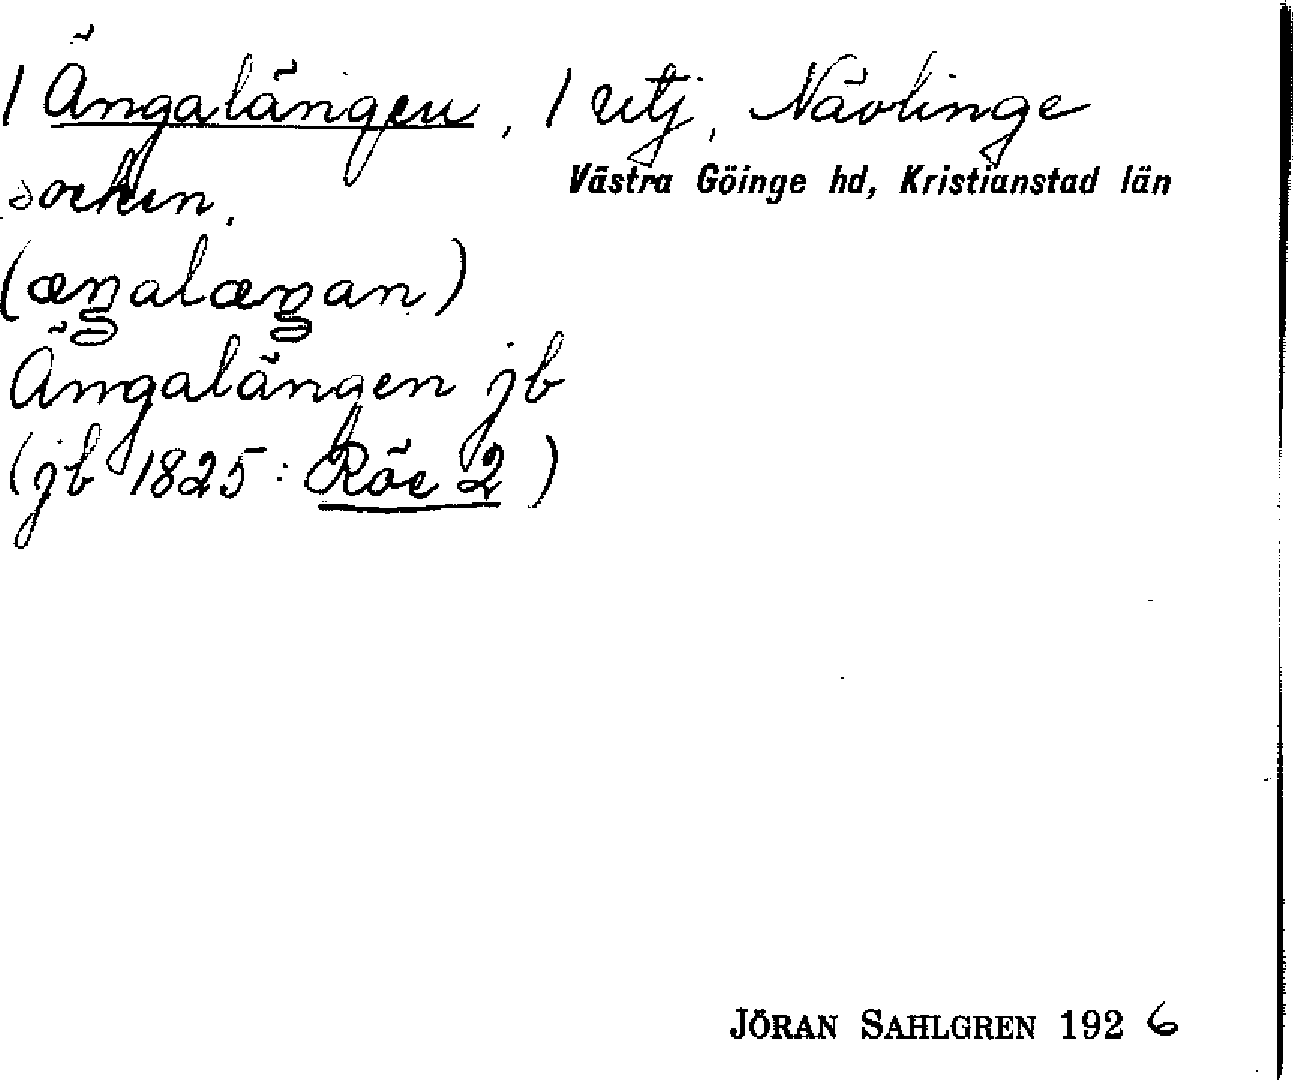 1 Ängalängen, 1 utj, Nävlinge
socken. Västra Göinge hd, Kristianstad län
(æŋalæŋan)
Ängalängen jb
(jb 1825: Röe 2)
JÖRAN SAHLGREN 1926